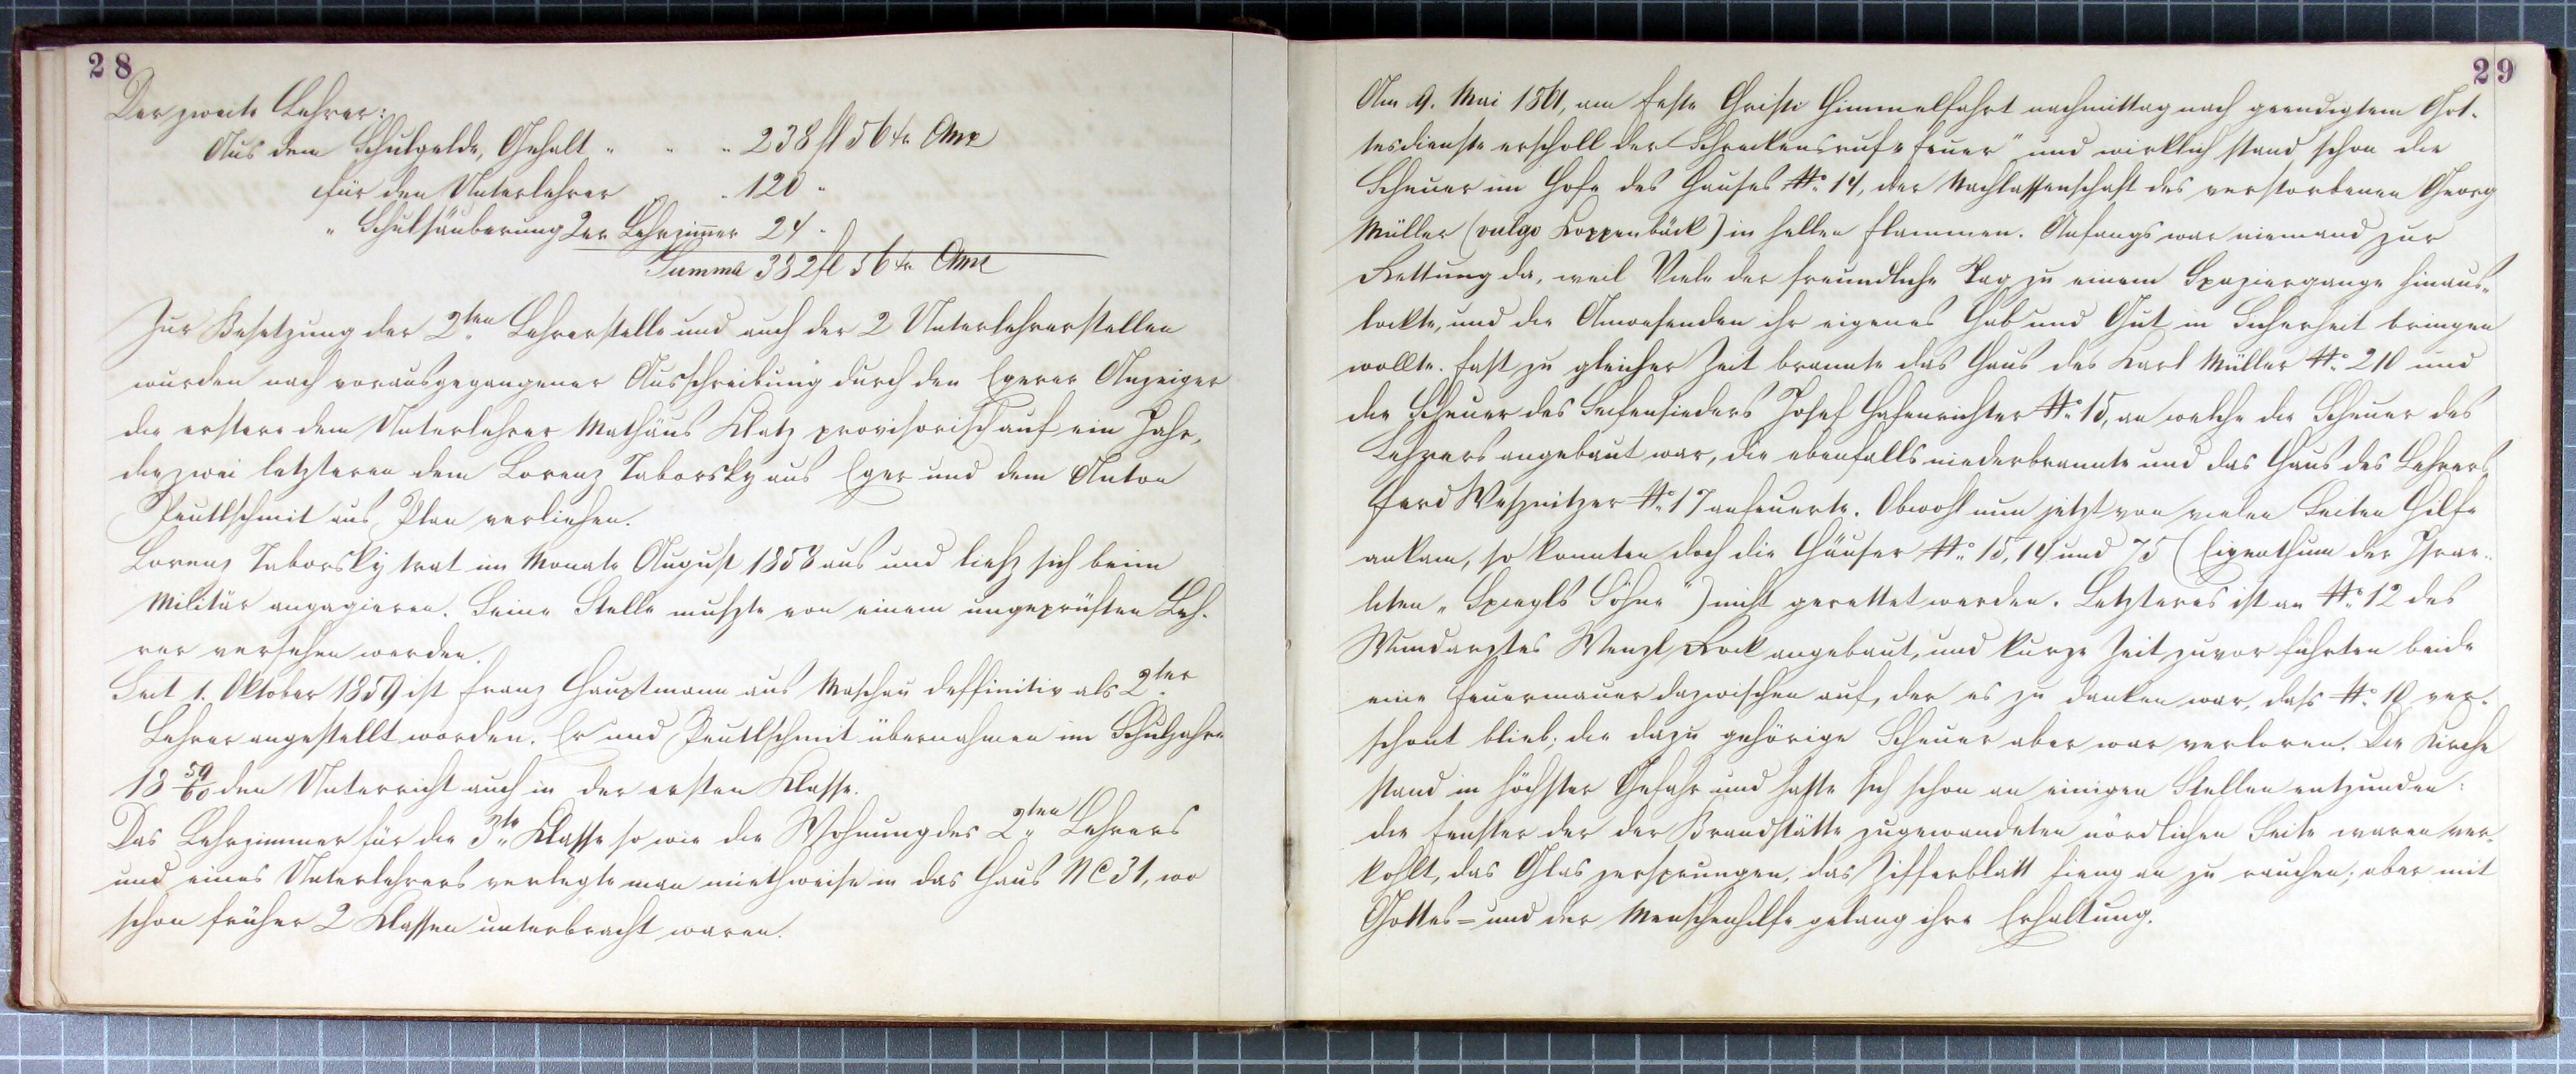 28
Der zweite Lehrer:
Aus dem Schulgelde, Gehalt " " " 238 fl 56 kr CMze
für den Unterlehrer " 120 "
" Schulsäuberung 2er Lehrzimmer 24 "
Summa 382 fl 56 kr CMze
Zur Besetzung der 2ten Lehrerstelle und auch der 2 Unterlehrerstellen
wurden nach vorausgegangener Ausschreibung durch den Egerer Anzeiger
die erstere dem Unterlehrer Mathäus Klatz provisorisch auf ein Jahr,
die zwei letzteren dem Lorenz Taborsky aus Eger und dem Anton
Peutlschmit aus Plan verliehen.
Lorenz Taborsky trat im Monate August 1858 aus und ließ sich beim
Militär angagieren. Seine Stelle mußte von einem ungeprüften Leh-
rer versehen werden.
Seit 1. Oktober 1859 ist Franz Hauptmann aus Maschau deffinitiv als 2ter
Lehrer angestellt worden. Er und Peutlschmit übernahmen im Schuljahre
18 59/60 den Unterricht auch in der ersten Klasse.
Das Lehrzimmer für die 3te Klasse so wie die Wohnung des 2ten Lehrers
und eines Unterlehrers verlegte man miethweise in das Haus NC 31, wo
schon früher 2 Klassen unterbracht waren.
29
Am 9. Mai 1861, am Feste Christi Himmelfahrt nachmittag nach geendigtem Got-
tesdienste erscholl der Schreckensruf „Feuer" und wirklich stand schon die
Scheuer im Hofe des Hauses No 14, der Nachlassenschaft des verstorbenen Georg
Müller (vulgo Koppenbäck) in hellen Flammen. Anfangs war niemand zur
Rettung da, weil Viele der freundliche Tag zu einem Spaziergange hinaus-
lockte, und die Anwesenden ihr eigenes Hab und Gut in Sicherheit bringen
wollte. Fast zu gleicher Zeit brannte das Haus des Karl Müller No 210 und
die Scheuer des Seifensieders Josef Hafenrichter No 15, an welche die Scheuer des
Lehrers angebaut war, die ebenfalls niederbrannte und das Haus des Lehrers
Ferd Wesznitzer No 17 anfeuerte. Obwohl nun jetzt von vielen Seiten Hilfe
ankam, so konnten doch die Häuser No 15, 14 und 75 (Eigenthum der Israe-
liten „Spiegls Söhne") nicht gerettet werden. Letzteres ist an No 12 des
Wundarztes Wenzl Rock angebaut, und kurze Zeit zuvor führten beide
eine Feuermauer dazwischen auf, der es zu danken war, daß No 12 ver-
schont blieb; die dazu gehörige Scheuer aber war verloren. Die Kirche
stand in höchster Gefahr und hatte sich schon an einigen Stellen entzunden:
die Fenster der der Brandstätte zugewandeten nördlichen Seite waren ver-
kohlt, das Glas zersprungen, das Zifferblatt fieng an zu rauchen; aber mit
Gottes- und der Menschenhilfe gelang ihre Erhaltung.